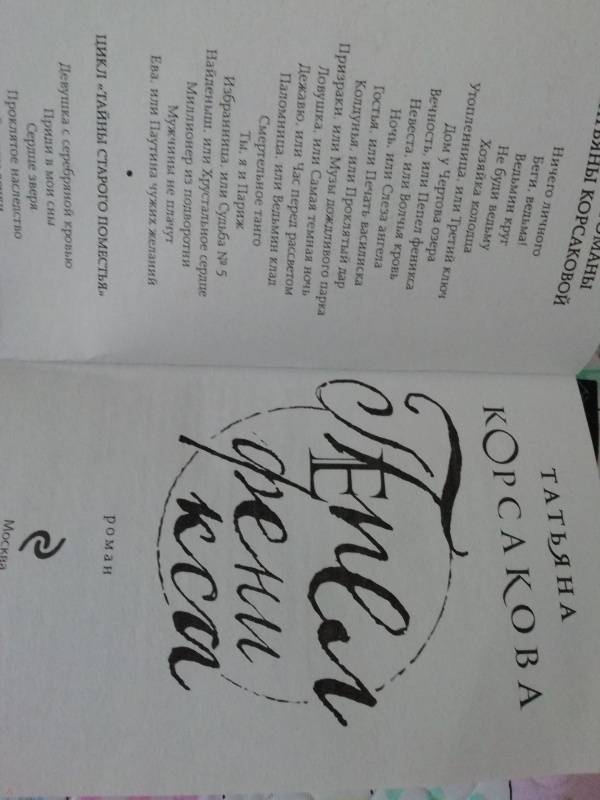 РОМАНЫ
ТАТЬЯНЫ КОРСАКОВОЙ
Ничего личного
Беги, ведьма!
Ведьмин круг
Не буди ведьму
Хозяйка колодца
Утопленница, или Третий ключ
Дом у Чертова озера
Вечность, или Пепел феникса
Невеста, или Волчья кровь
Ночь, или Слеза ангела
Гостья, или Печать василиска
Колдунья, или Проклятый дар
Призраки, или Музы дождливого парка
Ловушка, или Самая темная ночь
Дежавю, или Час перед рассветом
Паломница, или Ведьмин клад
Смертельное танго
Ты, я и Париж
Избранница, или Судьба № 5
Найденыш, или Хрустальное сердце
Миллионер из подворотни
Мужчины не плачут
Ева, или Паутина чужих желаний
•
ЦИКЛ «ТАЙНЫ СТАРОГО ПОМЕСТЬЯ»
Девушка с серебряной кровью
Приди в мои сны
Сердце зверя
Проклятое наследство
ТАТЬЯНА
КОРСАКОВА
Пепел
фени
кса
роман
Москва